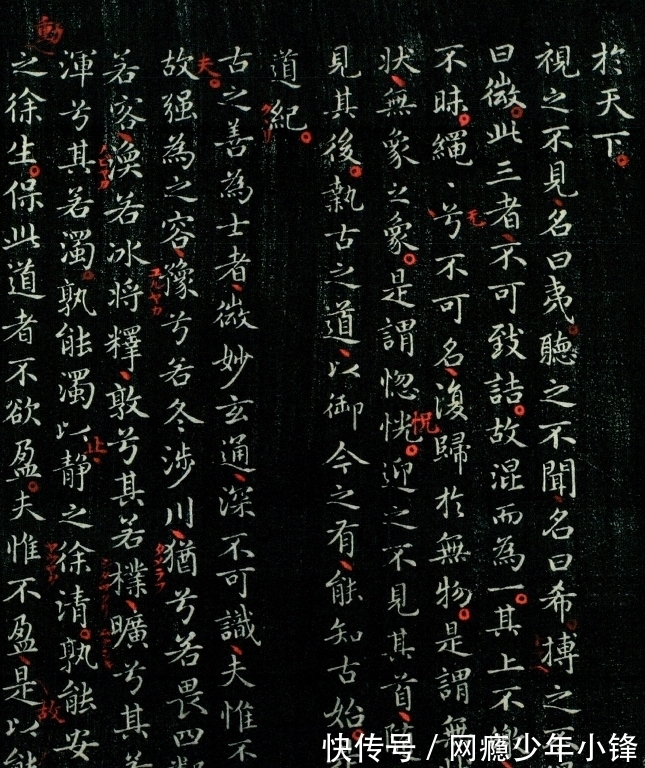 於天下。
視之不見、名曰夷。聽之不聞、名曰希。搏之不
曰微。此三者、不可致詰。故混而為一。其上不
不昧。繩〻兮不可名、復歸於無物。是謂無
狀、無象之象。是謂惚恍。迎之不見其首、
見其後。執古之道、以御今之有、能知古始。
道紀。
古之善為士者、微妙玄通、深不可識、夫惟不
故强為之容、豫兮若冬涉川、猶兮若畏四鄰
若客、渙若冰將釋、敦兮其若樸、曠兮其若
渾兮其若濁。孰能濁以靜之徐清。孰能安
之徐生。保此道者不欲盈。夫惟不盈、是以能
動
夫
无
怳
止
故
快传号 / 网瘾少年小锋